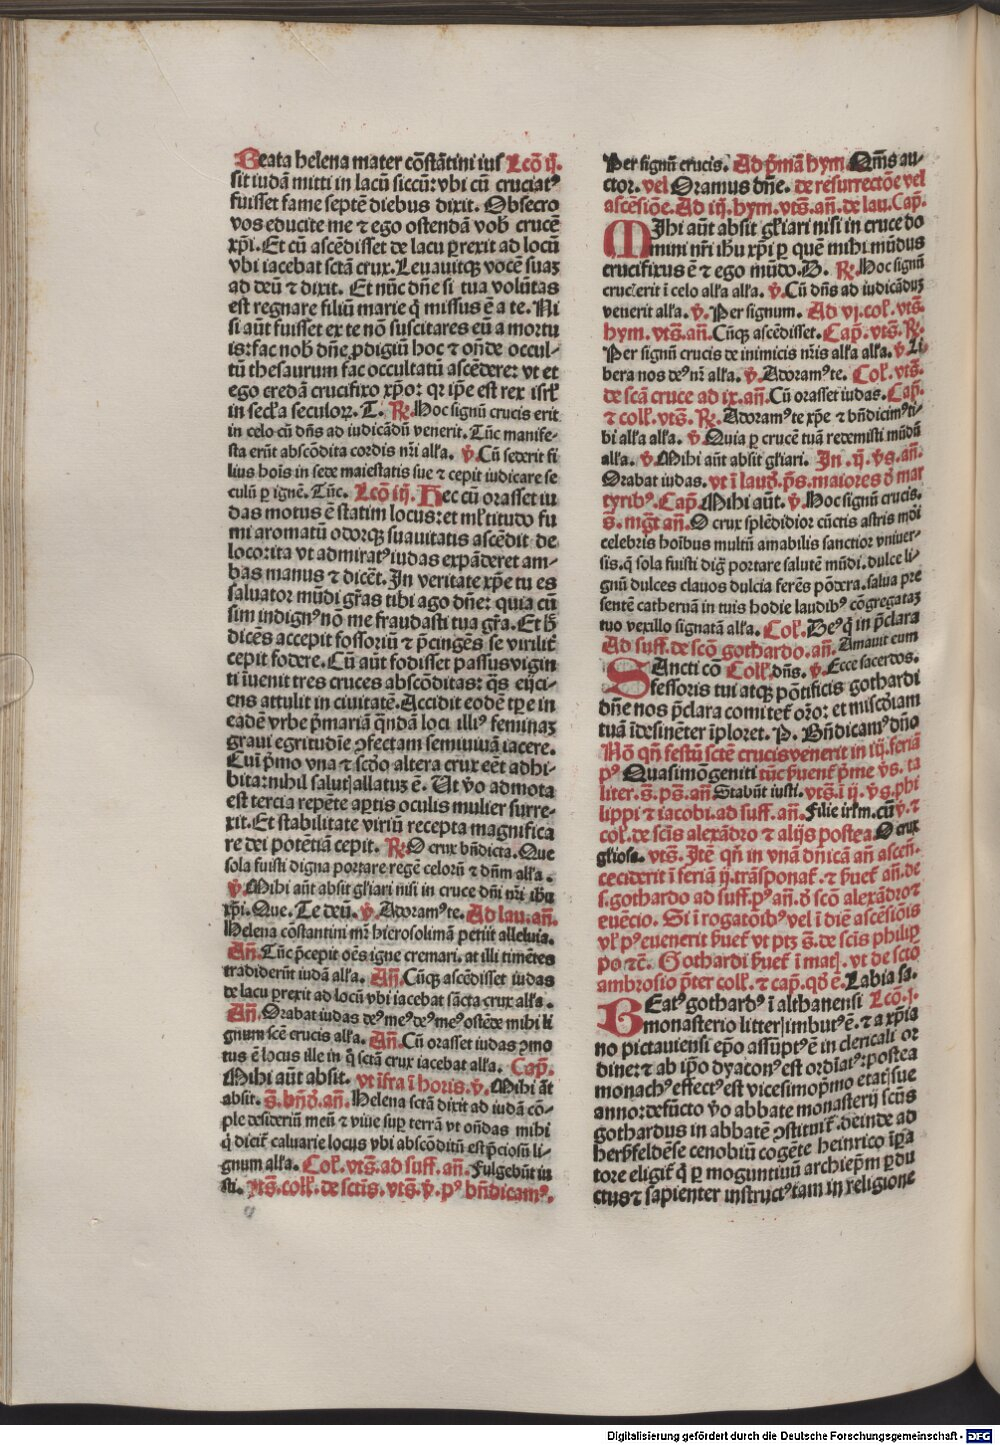 Beata helena mater cōstātini iuſ Lcō ij.
sit iudā mitti in lacū siccū: vbi cū cruciatꝰ
fuisset fame septē diebus dixit. Obsecro
vos educite me ⁊ ego ostendā vob̄ crucē
xp̄i. Et cū ascēdisset de lacu ꝑrexit ad locū
vbi iacebat sctā crux. Leuauitqꝫ vocē suaꝫ
ad deū ⁊ dixit. Et nūc dn̄e si tua volūtas
est regnare filiū marie q̇ missus ē a te. Ni
si aūt fuisset ex te nō suscitares eū a mortu
is: fac nob̄ dn̄e ꝓdigiū hoc ⁊ on̄de occul-
tū thesaurum fac occultatū ascēdere: vt et
ego credā crucifixo xp̄o: qꝛ ip̄e est rex isrl̄
in secl̄a seculoꝝ. T. R̄. Hoc signū crucis erit
in celo cū dn̄s ad iudicādū venerit. Tūc manife-
sta erūt abscōdita cordis nr̄i all̄a. ℣. Cū sederit fi
lius hoīs in sede maiestatis sue ⁊ cepit iudicare se
culū ꝑ ignē. Tūc. Lcō iij. Hec cū orasset iu
das motus ē statim locus: et ml̄titudo fu
mi aromatū odorqꝫ suauitatis ascēdit de
loco: ita vt admiratꝰ iudas expāderet am-
bas manus ⁊ dicēt. In veritate xp̄e tu es
saluator mūdi gr̄as tibi ago dn̄e: quia cū
sim indignꝰ nō me fraudasti tua gr̄a. Et h̄
dicēs accepit fossoriū ⁊ p̄cingēs se virilit̄
cepit fodere. Cū aūt fodisset passus vigin
ti īuenit tres cruces abscōditas: q̄s eijci-
ens attulit in ciuitatē. Accidit eodē tp̄e in
eadē vrbe p̄mariā q̄ndā loci illiꝰ feminaꝫ
graui egritudīe ↄfectam semiuiuā iacere.
Cui p̄mo vna ⁊ scd̄o altera crux eēt adhi-
bita: nihil salutꝭ allatuꝫ ē. Ut v̄o admota
est tercia repēte aptis oculis mulier surre-
xit. Et stabilitate viriū recepta magnifica
re dei potētiā cepit. R̄. O crux bn̄dicta. Que
sola fuisti digna portare regē celorū ⁊ dn̄m all̄a.
℣. Mihi aūt absit gl̄iari nisi in cruce dn̄i nr̄i ihū
xp̄i. Que. Te deū. ℣. Adoramꝰ te. Ad lau. an̄.
Helena cōstantini mr̄ hierosolimā petiit alleluia.
An̄. Tūc p̄cepit oēs igne cremari. at illi timētes
tradiderūt iudā all̄a. An̄. Cūqꝫ ascēdisset iudas
de lacu ꝑrexit ad locū vbi iacebat sācta crux all̄a.
An̄. Orabat iudas deꝰ meꝰ deꝰ meꝰ ostēde mihi li
gnum scē crucis all̄a. An̄. Cū orasset iudas ↄmo
tus ē locus ille in q̇ sctā crux iacebat all̄a. Cap̄.
Mihi aūt absit. vt īfra ī horis. ℣. Mihi āt
absit. S̄. bn̄d̄. an̄. Helena sctā dixit ad iudā cō-
ple desideriū meū ⁊ viue suꝑ terrā vt on̄das mihi
q̇ dicit̄ caluarie locus vbi abscōditū est p̄ciosū li-
gnum all̄a. Col̄. vts̄. ad suff. an̄. Fulgebūt iu
sti. vts̄. coll̄. de sctīs. vts̄. ℣. pꝰ bn̄dicamꝰ.
Per signū crucis. Ad p̄mā hym. Om̄s au-
ctor. vel Oramus dn̄e. de resurrectōe vel
ascēsiōe. Ad iij. hym. vts̄. an̄. de lau. Cap̄.
MIhi aūt absit gl̄iari nisi in cruce do
mini nr̄i ihū xp̄i ꝑ quē mihi mūdus
crucifixus ē ⁊ ego mūdo. D. R̄. Hoc signū
crucꝭ erit ī celo all̄a all̄a. ℣. Cū dn̄s ad iudicāduꝫ
venerit all̄a. ℣. Per signum. Ad vj. col̄. vts̄.
hym. vts̄. an̄. Cūqꝫ ascēdisset. Cap̄. vts̄. R̄.
Per signū crucis de inimicis nr̄is all̄a all̄a. ℣. Li
bera nos deꝰ nr̄ all̄a. ℣. Adoramꝰ te. Col̄. vts̄.
de scā cruce ad ix. an̄. Cū orasset iudas. Cap̄.
⁊ coll̄. vts̄. R̄. Adoramꝰ te xp̄e ⁊ bn̄dicimꝰ ti-
bi all̄a all̄a. ℣. Quia ꝑ crucē tuā redemisti mūdū
all̄a. ℣. Mihi aūt absit gl̄iari. In .ij. vs̄. an̄.
Orabat iudas. vt ī laud̄. p̄s. maiores d̄ mar
tyribꝰ. Cap̄. Mihi aūt. ℣. Hoc signū crucis.
S̄. mḡt an̄. O crux splēdidior cūctis astris mōi
celebris hoībus multū amabilis sanctior vniuer-
sis. q̄ sola fuisti dig̃ portare salutē mūdi. dulce li-
gnū dulces clauos dulcia ferēs pōdera. salua pre
sentē cateruā in tuis hodie laudibꝰ cōgregataꝫ
tuo vexillo signatā all̄a. Col̄. Deꝰ q̇ in p̄clara
Ad suff. de scō gothardo. an̄. Amauit eum
SAncti cō Coll̄. dn̄s. ℣. Ecce sacerdos.
fessoris tui atqꝫ pōtificis gothardi
dn̄e nos p̄clara comitet̄ or̄o: et miscd̄iam
tuā īdesinēter īploret. P. Bn̄dicamꝰ dn̄o
Nō qn̄ festū sctē crucis venerit in iij. feriā
pꝰ Quasimōgeniti tūc ꝓuenit p̄me vs̄. ta
liter. S̄. ps̄. an̄. Stabūt iusti. vts̄. ī ij. vs̄. phi
lippi ⁊ iacobi. ad suff. an̄. Filie irl̄m. cū ℣. ⁊
col̄. de scīs alexādro ⁊ alijs postea. O crux
gl̄iosa. vts̄. Itē qn̄ in vnā dn̄icā an̄ ascen̄.
ceciderit ī feriā ij. trāsponat̄. ⁊ h̄uet̄ an̄. de
s. gothardo ad suff. pꝰ an̄. d̄ scō alexādro ⁊
euēcio. Si ī rogatōībꝰ vel ī die ascēsiōis
vl̄ pꝰ euenerit h̄uet̄ vt ptꝫ s̄. de scīs philip
po ⁊c̄. Gothardi h̄uet̄ ī matꝭ. vt de scto
ambrosio p̄ter coll̄. ⁊ cap̄. qd̄ ē. Labia sa.
BEatꝰ gothardꝰ ī althanensi Lcō. j.
monasterio litterꝭ imbutꝰ ē. ⁊ a xp̄ia
no pictauiensi ep̄o assūptꝰ ē in clericali or
dine: ⁊ ab ip̄o dyaconꝰ est ordīatꝰ: postea
monachꝰ effectꝰ est vicesimop̄mo etatꝭ sue
anno: defūcto v̄o abbate monasterij scūs
gothardus in abbatē ↄstituit̄. deinde ad
hersfeldēse cenobiū cogēte heinrico īꝑa
tore eligit̄ q̇ ꝑ moguntinū archiep̄m ꝑdu
ctus ⁊ sapienter instructꝰ tam in religione
Digitalisierung gefördert durch die Deutsche Forschungsgemeinschaft - DFG